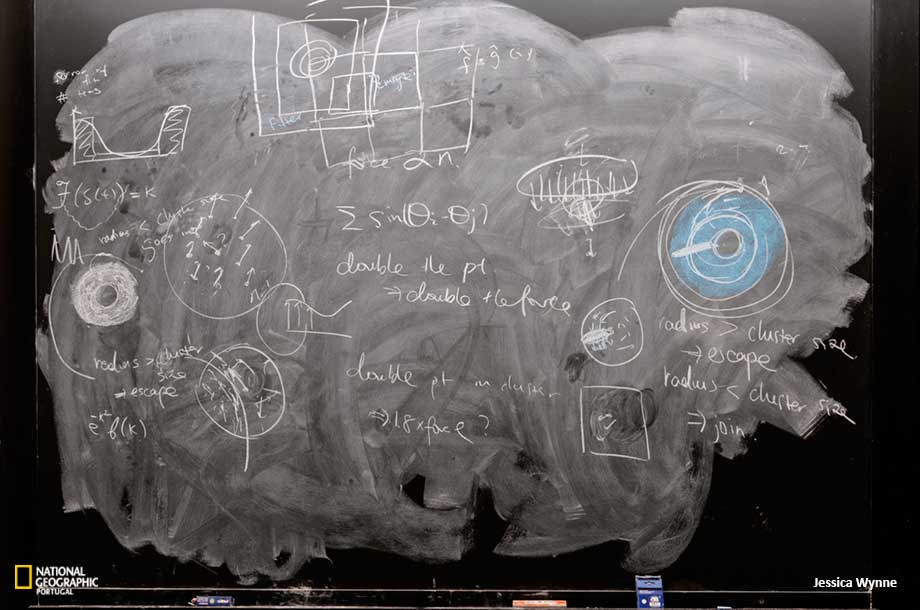 error of
# 
filter
force α n.
𝓕(s(t)) = k
radius < cluster size
goes into
∑ sin(θi - θj)
double the pt
⇒ double the force
radius > cluster
size
→ escape
e^-k² f(k)
double pt in cluster
⇒ 1.8 × force ?
radius > cluster size
⇒ escape
radius < cluster size
⇒ join
NATIONAL
GEOGRAPHIC
PORTUGAL
Jessica Wynne